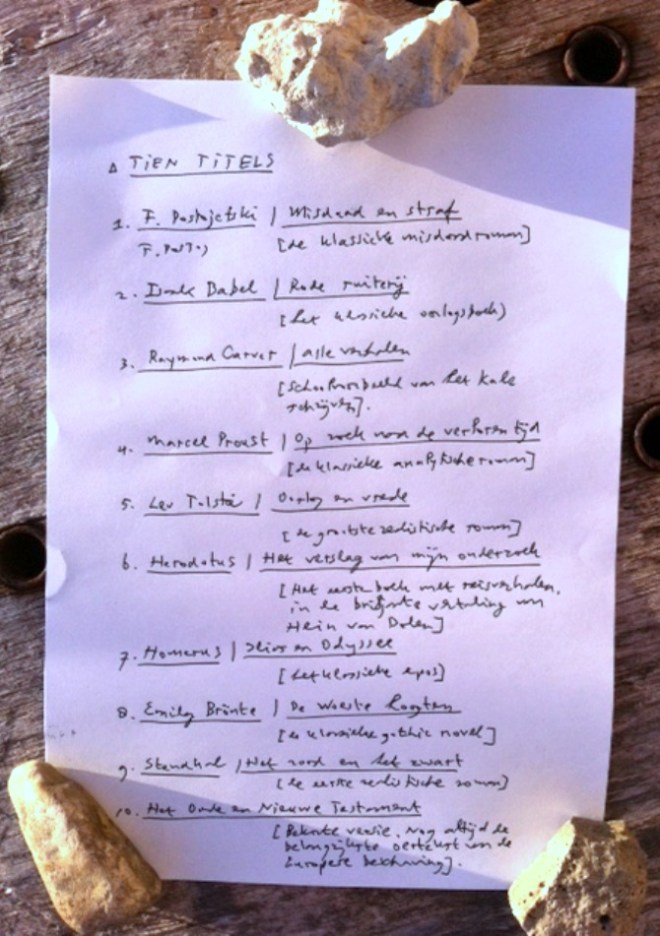 TIEN TITELS
1. F. Dostojefski / Misdaad en straf
F. Dosto, [de klassieke misdaadroman]
2. Isaak Babel / Rode ruiterij
[het klassieke oorlogsboek]
3. Raymond Carver / alle verhalen
[schoolvoorbeeld van het kale
schrijven].
4. Marcel Proust / Op zoek naar de verloren tijd
[de klassieke analytische roman]
5. Lev Tolstoi / Oorlog en vrede
[de grootste realistische roman]
6. Herodotus / Het verslag van mijn onderzoek
[Het eerste boek met reisverhalen,
in de briljante vertaling van
Hein van Dolen]
7. Homerus / Ilias en Odyssee
[het klassieke epos]
8. Emily Brönte / De Woeste hoogten
[de klassieke gothic novel]
9. Stendhal / Het rood en het zwart
[de eerste realistische roman]
10. Het Oude en Nieuwe Testament
[Bekorte versie. Nog altijd de
belangrijkste oertekst van de
Europese beschaving].